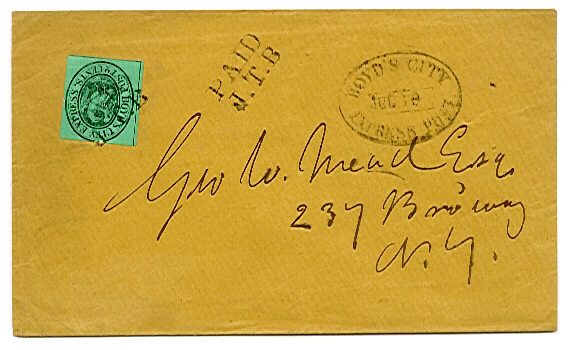 BOYD'S CITY EXPRESS POST
PAID
J.T.B
BOYD'S CITY
JUL 19
EXPRESS POST
Geo W. Mead Esq.
237 Brōway
N. Y.